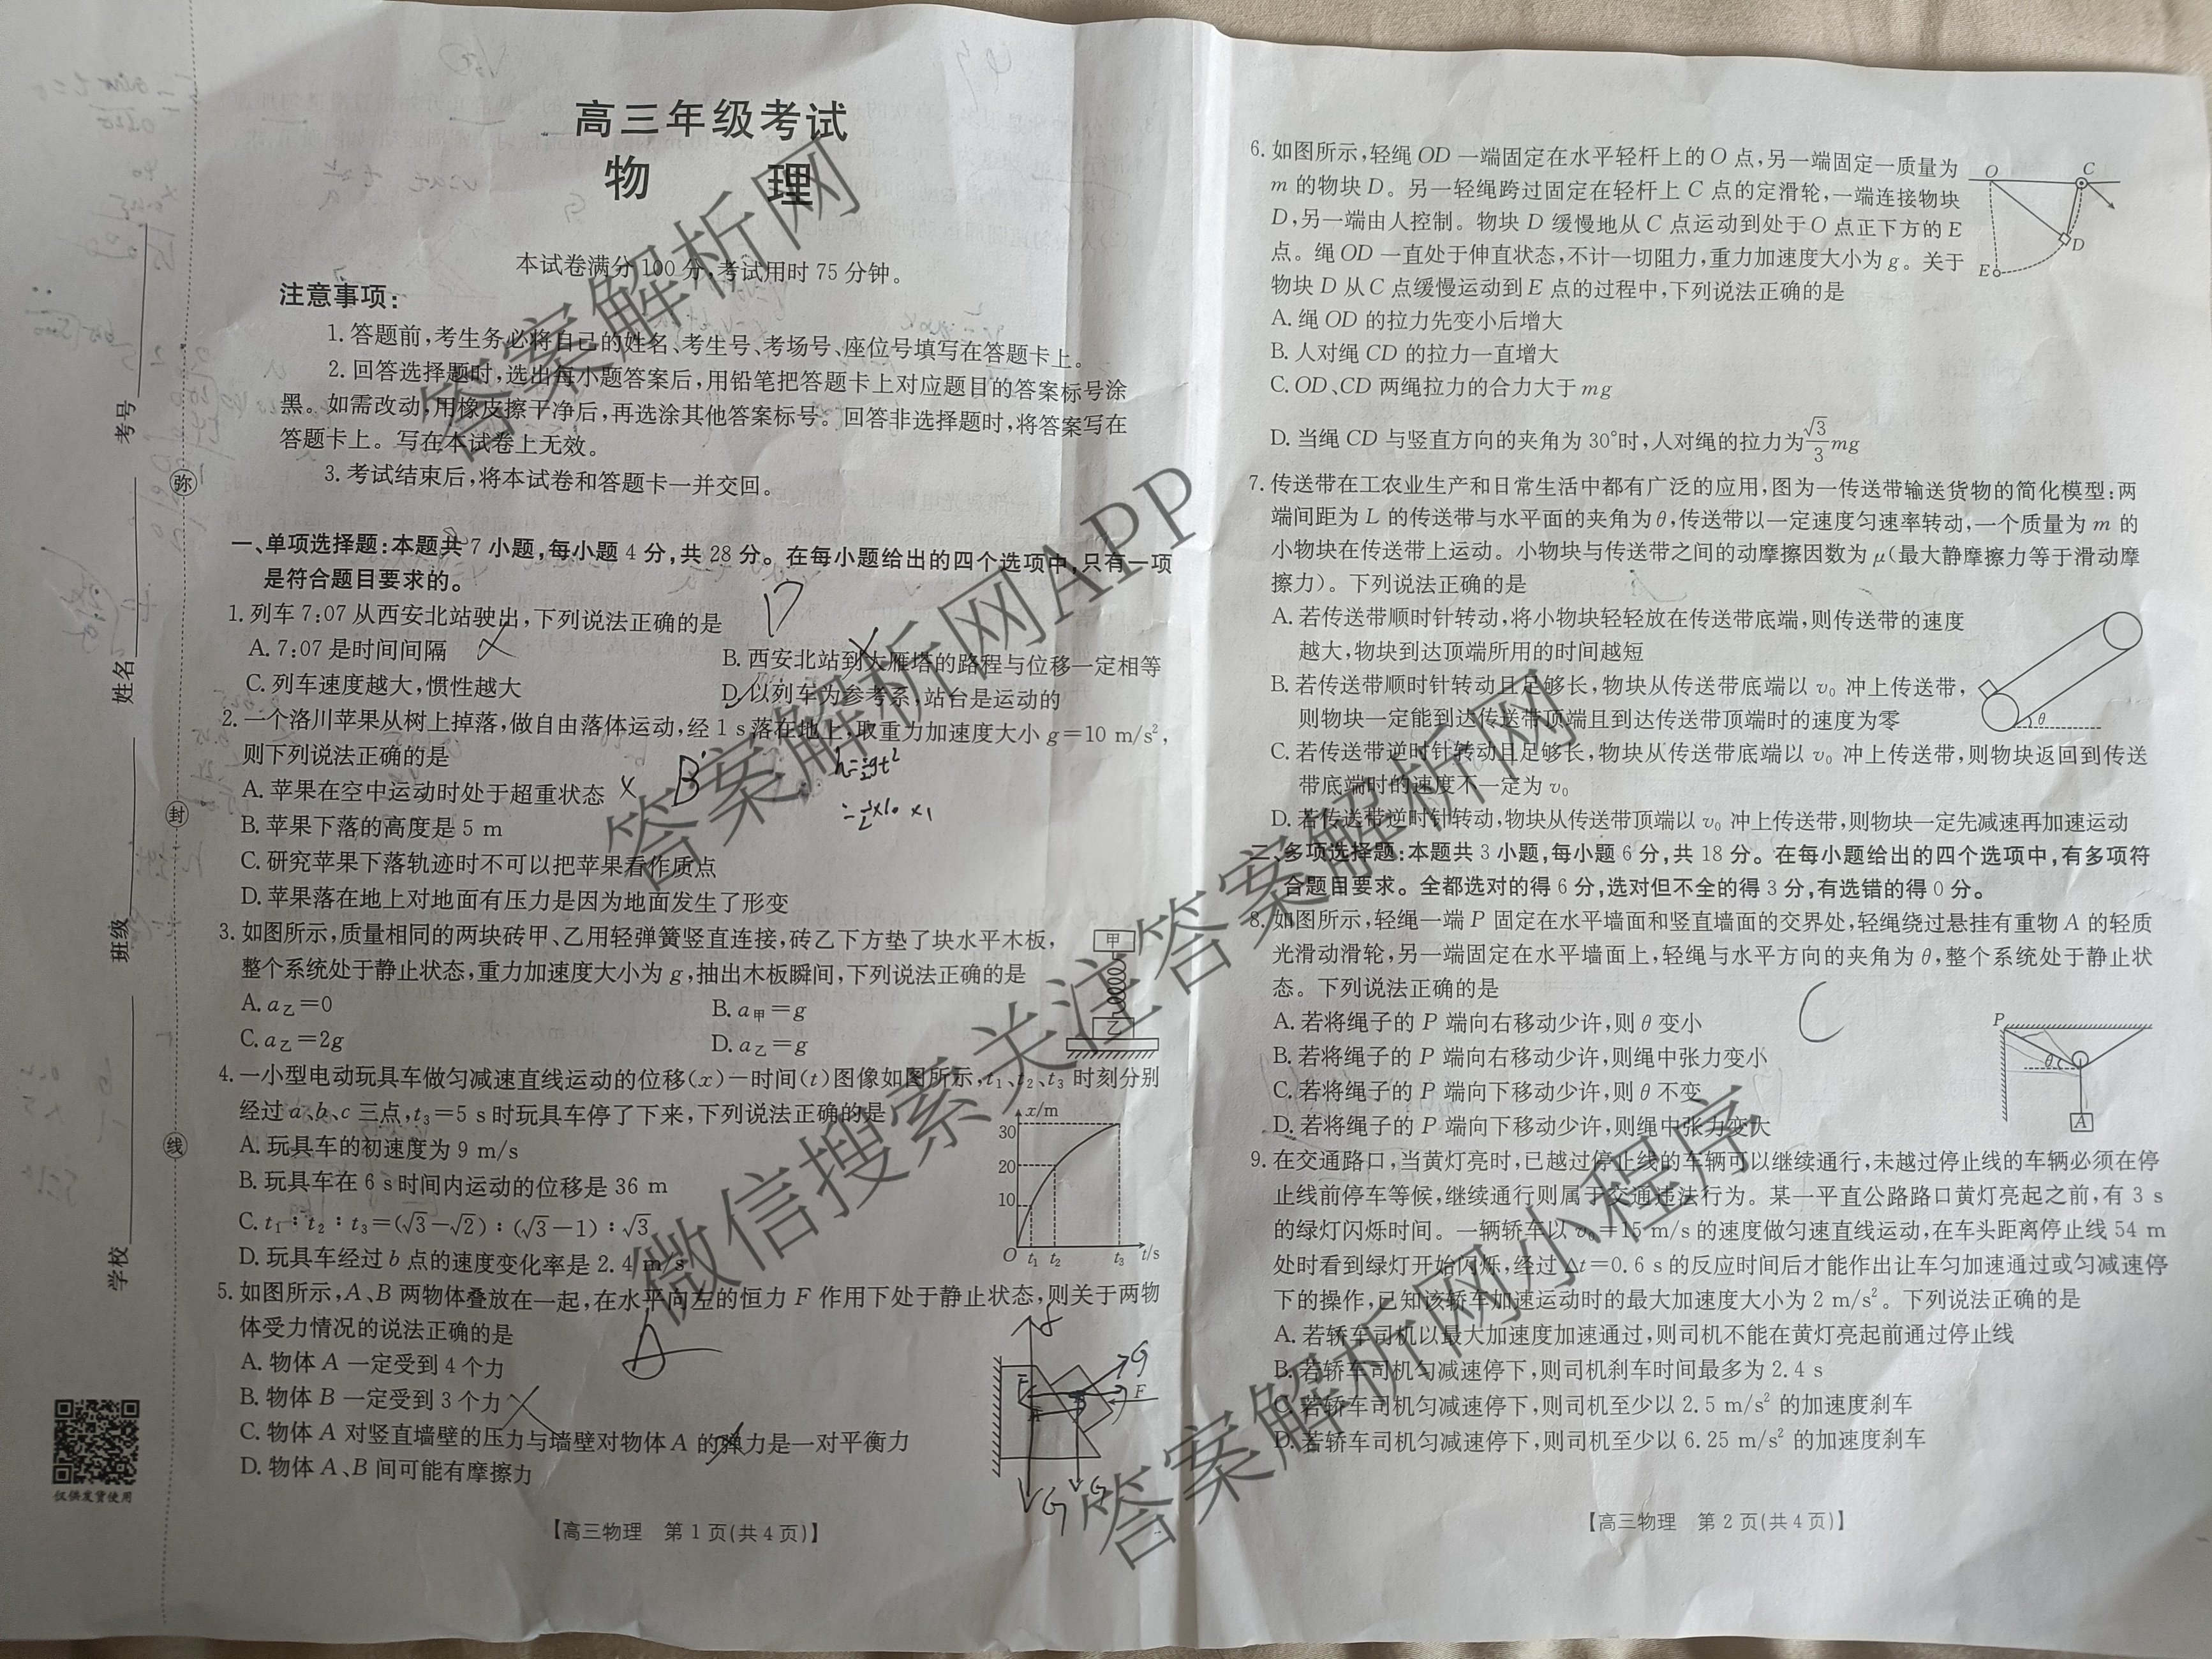 高三年级考试
物 理
本试卷满分100分,考试用时75分钟。
注意事项:
1. 答题前,考生务必将自己的姓名、考生号、考场号、座位号填写在答题卡上。
2. 回答选择题时,选出每小题答案后,用铅笔把答题卡上对应题目的答案标号涂
黑。如需改动,用橡皮擦干净后,再选涂其他答案标号。回答非选择题时,将答案写在
答题卡上。写在本试卷上无效。
3. 考试结束后,将本试卷和答题卡一并交回。
一、单项选择题:本题共7小题,每小题4分,共28分。在每小题给出的四个选项中,只有一项
是符合题目要求的。
1. 列车7:07从西安北站驶出,下列说法正确的是 D
A. 7:07是时间间隔 ×
B. 西安北站到大雁塔的路程与位移一定相等
C. 列车速度越大,惯性越大
D. 以列车为参考系,站台是运动的
2. 一个洛川苹果从树上掉落,做自由落体运动,经1 s落在地上,取重力加速度大小g=10 m/s²,
则下列说法正确的是
A. 苹果在空中运动时处于超重状态 × B
h=½gt²
=½×10×1
B. 苹果下落的高度是5 m
C. 研究苹果下落轨迹时不可以把苹果看作质点
D. 苹果落在地上对地面有压力是因为地面发生了形变
3. 如图所示,质量相同的两块砖甲、乙用轻弹簧竖直连接,砖乙下方垫了块水平木板,
整个系统处于静止状态,重力加速度大小为g,抽出木板瞬间,下列说法正确的是
A. a乙=0
B. a甲=g
C. a乙=2g
D. a乙=g
甲
乙
4. 一小型电动玩具车做匀减速直线运动的位移(x)-时间(t)图像如图所示,t₁、t₂、t₃时刻分别
经过a、b、c三点,t₃=5 s时玩具车停了下来,下列说法正确的是
A. 玩具车的初速度为9 m/s
B. 玩具车在6 s时间内运动的位移是36 m
C. t₁:t₂:t₃=(√3-√2):(√3-1):√3
D. 玩具车经过b点的速度变化率是2.4 m/s
x/m
30
20
10
O t₁ t₂ t₃ t/s
5. 如图所示,A、B两物体叠放在一起,在水平向左的恒力F作用下处于静止状态,则关于两物
体受力情况的说法正确的是
A
A. 物体A一定受到4个力
B. 物体B一定受到3个力 ×
C. 物体A对竖直墙壁的压力与墙壁对物体A的弹力是一对平衡力
D. 物体A、B间可能有摩擦力
G
F
G
G
【高三物理 第1页(共4页)】
6. 如图所示,轻绳OD一端固定在水平轻杆上的O点,另一端固定一质量为
m的物块D。另一轻绳跨过固定在轻杆上C点的定滑轮,一端连接物块
D,另一端由人控制。物块D缓慢地从C点运动到处于O点正下方的E
点。绳OD一直处于伸直状态,不计一切阻力,重力加速度大小为g。关于
物块D从C点缓慢运动到E点的过程中,下列说法正确的是
A. 绳OD的拉力先变小后增大
B. 人对绳CD的拉力一直增大
C. OD、CD两绳拉力的合力大于mg
D. 当绳CD与竖直方向的夹角为30°时,人对绳的拉力为√3/3 mg
O C
D
E
7. 传送带在工农业生产和日常生活中都有广泛的应用,图为一传送带输送货物的简化模型:两
端间距为L的传送带与水平面的夹角为θ,传送带以一定速度匀速率转动,一个质量为m的
小物块在传送带上运动。小物块与传送带之间的动摩擦因数为μ(最大静摩擦力等于滑动摩
擦力)。下列说法正确的是
A. 若传送带顺时针转动,将小物块轻轻放在传送带底端,则传送带的速度
越大,物块到达顶端所用的时间越短
B. 若传送带顺时针转动且足够长,物块从传送带底端以v₀冲上传送带,
则物块一定能到达传送带顶端且到达传送带顶端时的速度为零
C. 若传送带逆时针转动且足够长,物块从传送带底端以v₀冲上传送带,则物块返回到传送
带底端时的速度不一定为v₀
D. 若传送带逆时针转动,物块从传送带顶端以v₀冲上传送带,则物块一定先减速再加速运动
θ
二、多项选择题:本题共3小题,每小题6分,共18分。在每小题给出的四个选项中,有多项符
合题目要求。全都选对的得6分,选对但不全的得3分,有选错的得0分。
8. 如图所示,轻绳一端P固定在水平墙面和竖直墙面的交界处,轻绳绕过悬挂有重物A的轻质
光滑动滑轮,另一端固定在水平墙面上,轻绳与水平方向的夹角为θ,整个系统处于静止状
态。下列说法正确的是
C
A. 若将绳子的P端向右移动少许,则θ变小
B. 若将绳子的P端向右移动少许,则绳中张力变小
C. 若将绳子的P端向下移动少许,则θ不变
D. 若将绳子的P端向下移动少许,则绳中张力变大
P
θ
A
9. 在交通路口,当黄灯亮时,已越过停止线的车辆可以继续通行,未越过停止线的车辆必须在停
止线前停车等候,继续通行则属于交通违法行为。某一平直公路路口黄灯亮起之前,有3 s
的绿灯闪烁时间。一辆轿车以v₀=15 m/s的速度做匀速直线运动,在车头距离停止线54 m
处时看到绿灯开始闪烁,经过Δt=0.6 s的反应时间后才能作出让车匀加速通过或匀减速停
下的操作,已知该轿车加速运动时的最大加速度大小为2 m/s²。下列说法正确的是
A. 若轿车司机以最大加速度加速通过,则司机不能在黄灯亮起前通过停止线
B. 若轿车司机匀减速停下,则司机刹车时间最多为2.4 s
C. 若轿车司机匀减速停下,则司机至少以2.5 m/s²的加速度刹车
D. 若轿车司机匀减速停下,则司机至少以6.25 m/s²的加速度刹车
【高三物理 第2页(共4页)】
考号
姓名
班级
学校
弥
封
线
仅供发货使用
答案解析网
微信搜索关注答案解析网
答案解析网APP
答案解析网小程序